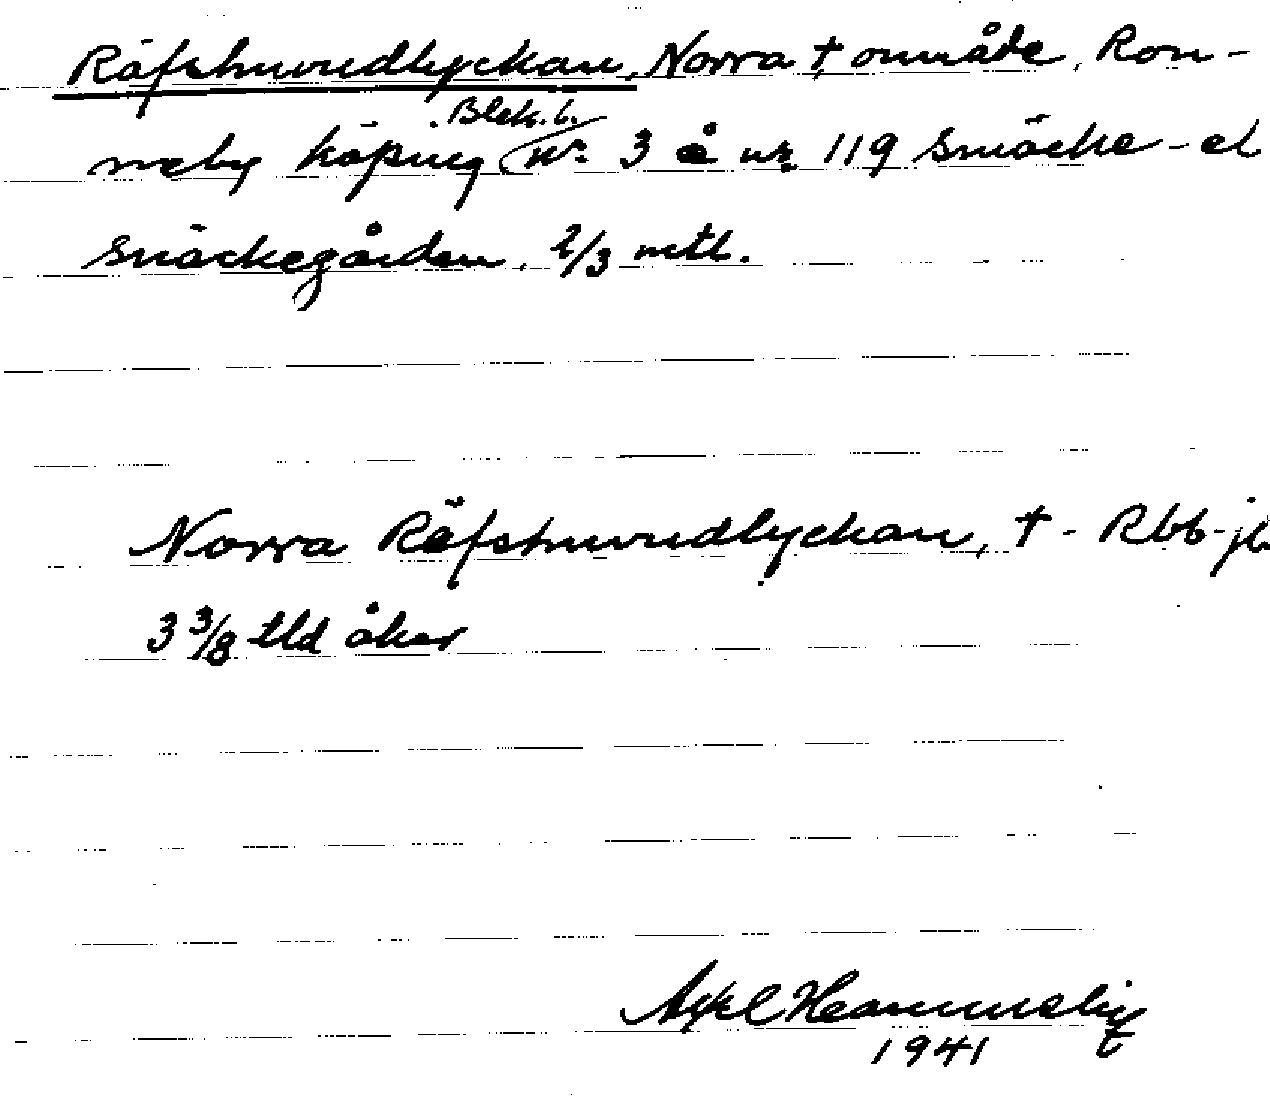 Räfshuvudlyckan, Norra † område, Ron-
Blek. l.
neby köping nr 3 å nr 119 Snäcke- el
Snäckegården. 2/3 mtl.
Norra Räfshuvudlyckan, † - Rbb-jb
3 3/8 tld åker
Axel
1941